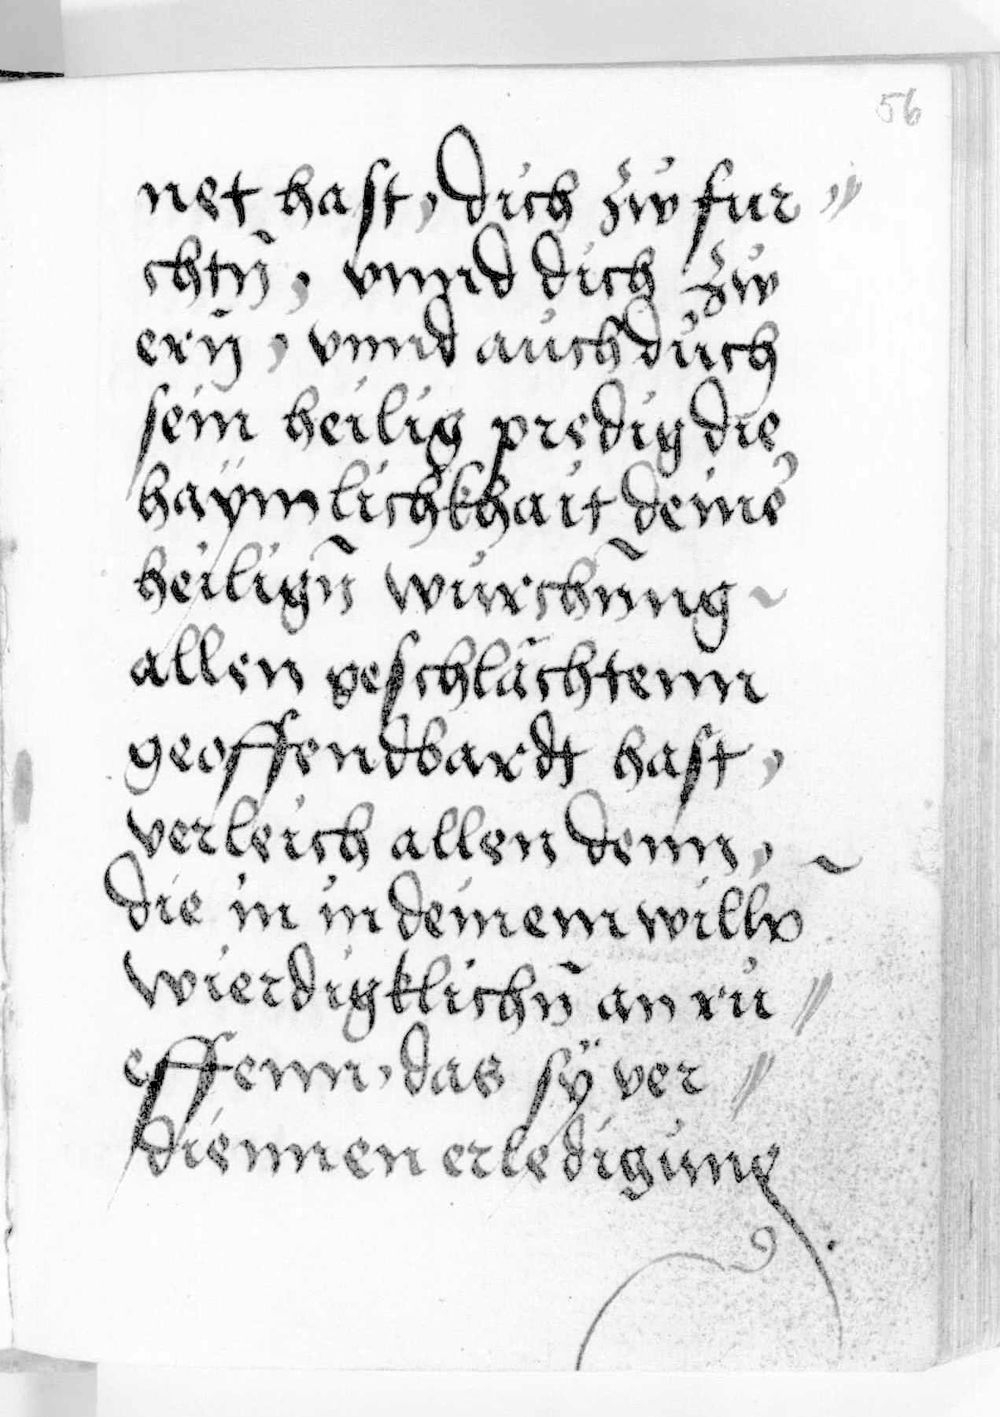 56
net hast, dich zw̌ fur⸗
chtn̄, vnnd dich zw̌
ern̄, vnnd aǔch dǔrch
sein heilig predig die
haÿmlichkhait deine᷑
heilign̄ wǔrchūng
allen geschlächtenn
geoffendbardt hast,
verleich allen denn,
die in in deinem willn̄
wierdigklichn̄ an rǔ⸗
effenn, das sÿ ver⸗
diennen erledigǔng